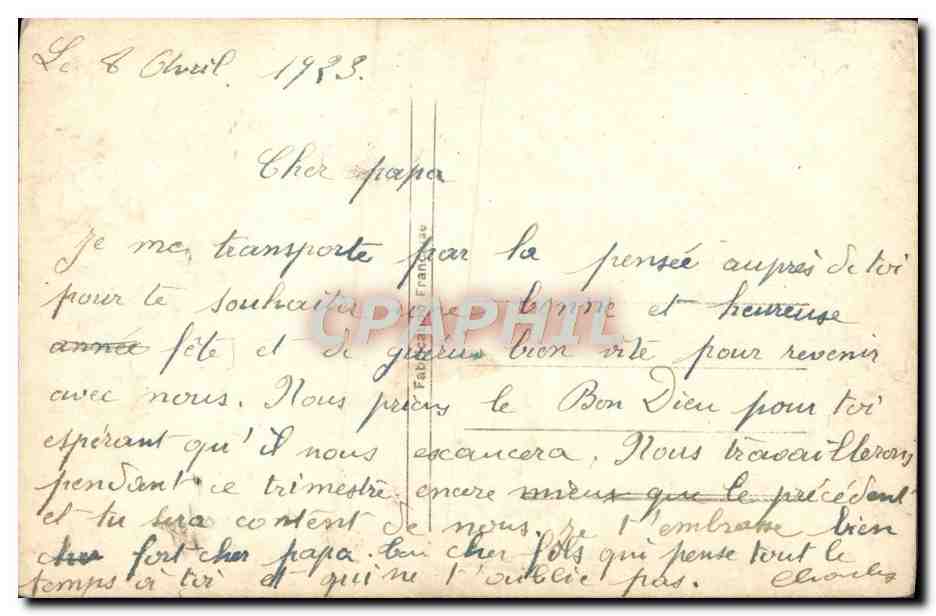 Le 8 Avril 1923.
Cher papa
Je me transporte par la pensée auprès de toi
pour te souhaiter une bonne et heureuse
année fête et de guérir bien vite pour revenir
avec nous. Nous prions le Bon Dieu pour toi
espérant qu'il nous exaucera. Nous travaillerons
pendant ce trimestre encore mieux que le précédent
et tu sera content de nous. Je t'embrasse bien
fort cher papa. ton cher fils qui pense tout le
temps à toi et qui ne t'oublie pas. Charles
Fabrication Française
CPAPHIL